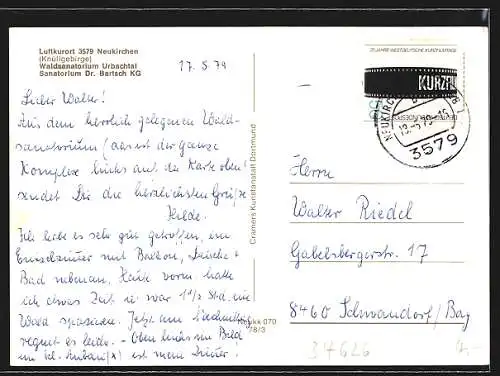 Luftkurort 3579 Neukirchen
(Knüllgebirge)
Waldsanatorium Urbachtal
Sanatorium Dr. Bartsch KG
17.5.79
Lieber Walter!
Aus dem herrlich gelegenen Wald-
sanatorium (das ist der ganze
Komplex links auf der Karte oben!
sendet Dir die herzlichsten Grüße
Hilde.
Ich habe es sehr gut getroffen, ein
Einzelzimmer mit Balkon, Dusche +
Bad nebenan, Heute vorm. hatte
ich etwas Zeit u. war 1 1/2 Std. im
Wald spazieren. Jetzt am Nachmittag
regnet es leider. - Oben links im Bild
ist mein Zimmer!
Cramers Kunstanstalt Dortmund
070
78/3
25 JAHRE WESTDEUTSCHE KURZFILMTAGE
KURZFI
DEUTSCHE BUNDESPOST
NEUKIRCH
3579
Herrn
Walter Riedel
Gabelsbergerstr. 17
8460 Schwandorf/Bay
34626
4,-